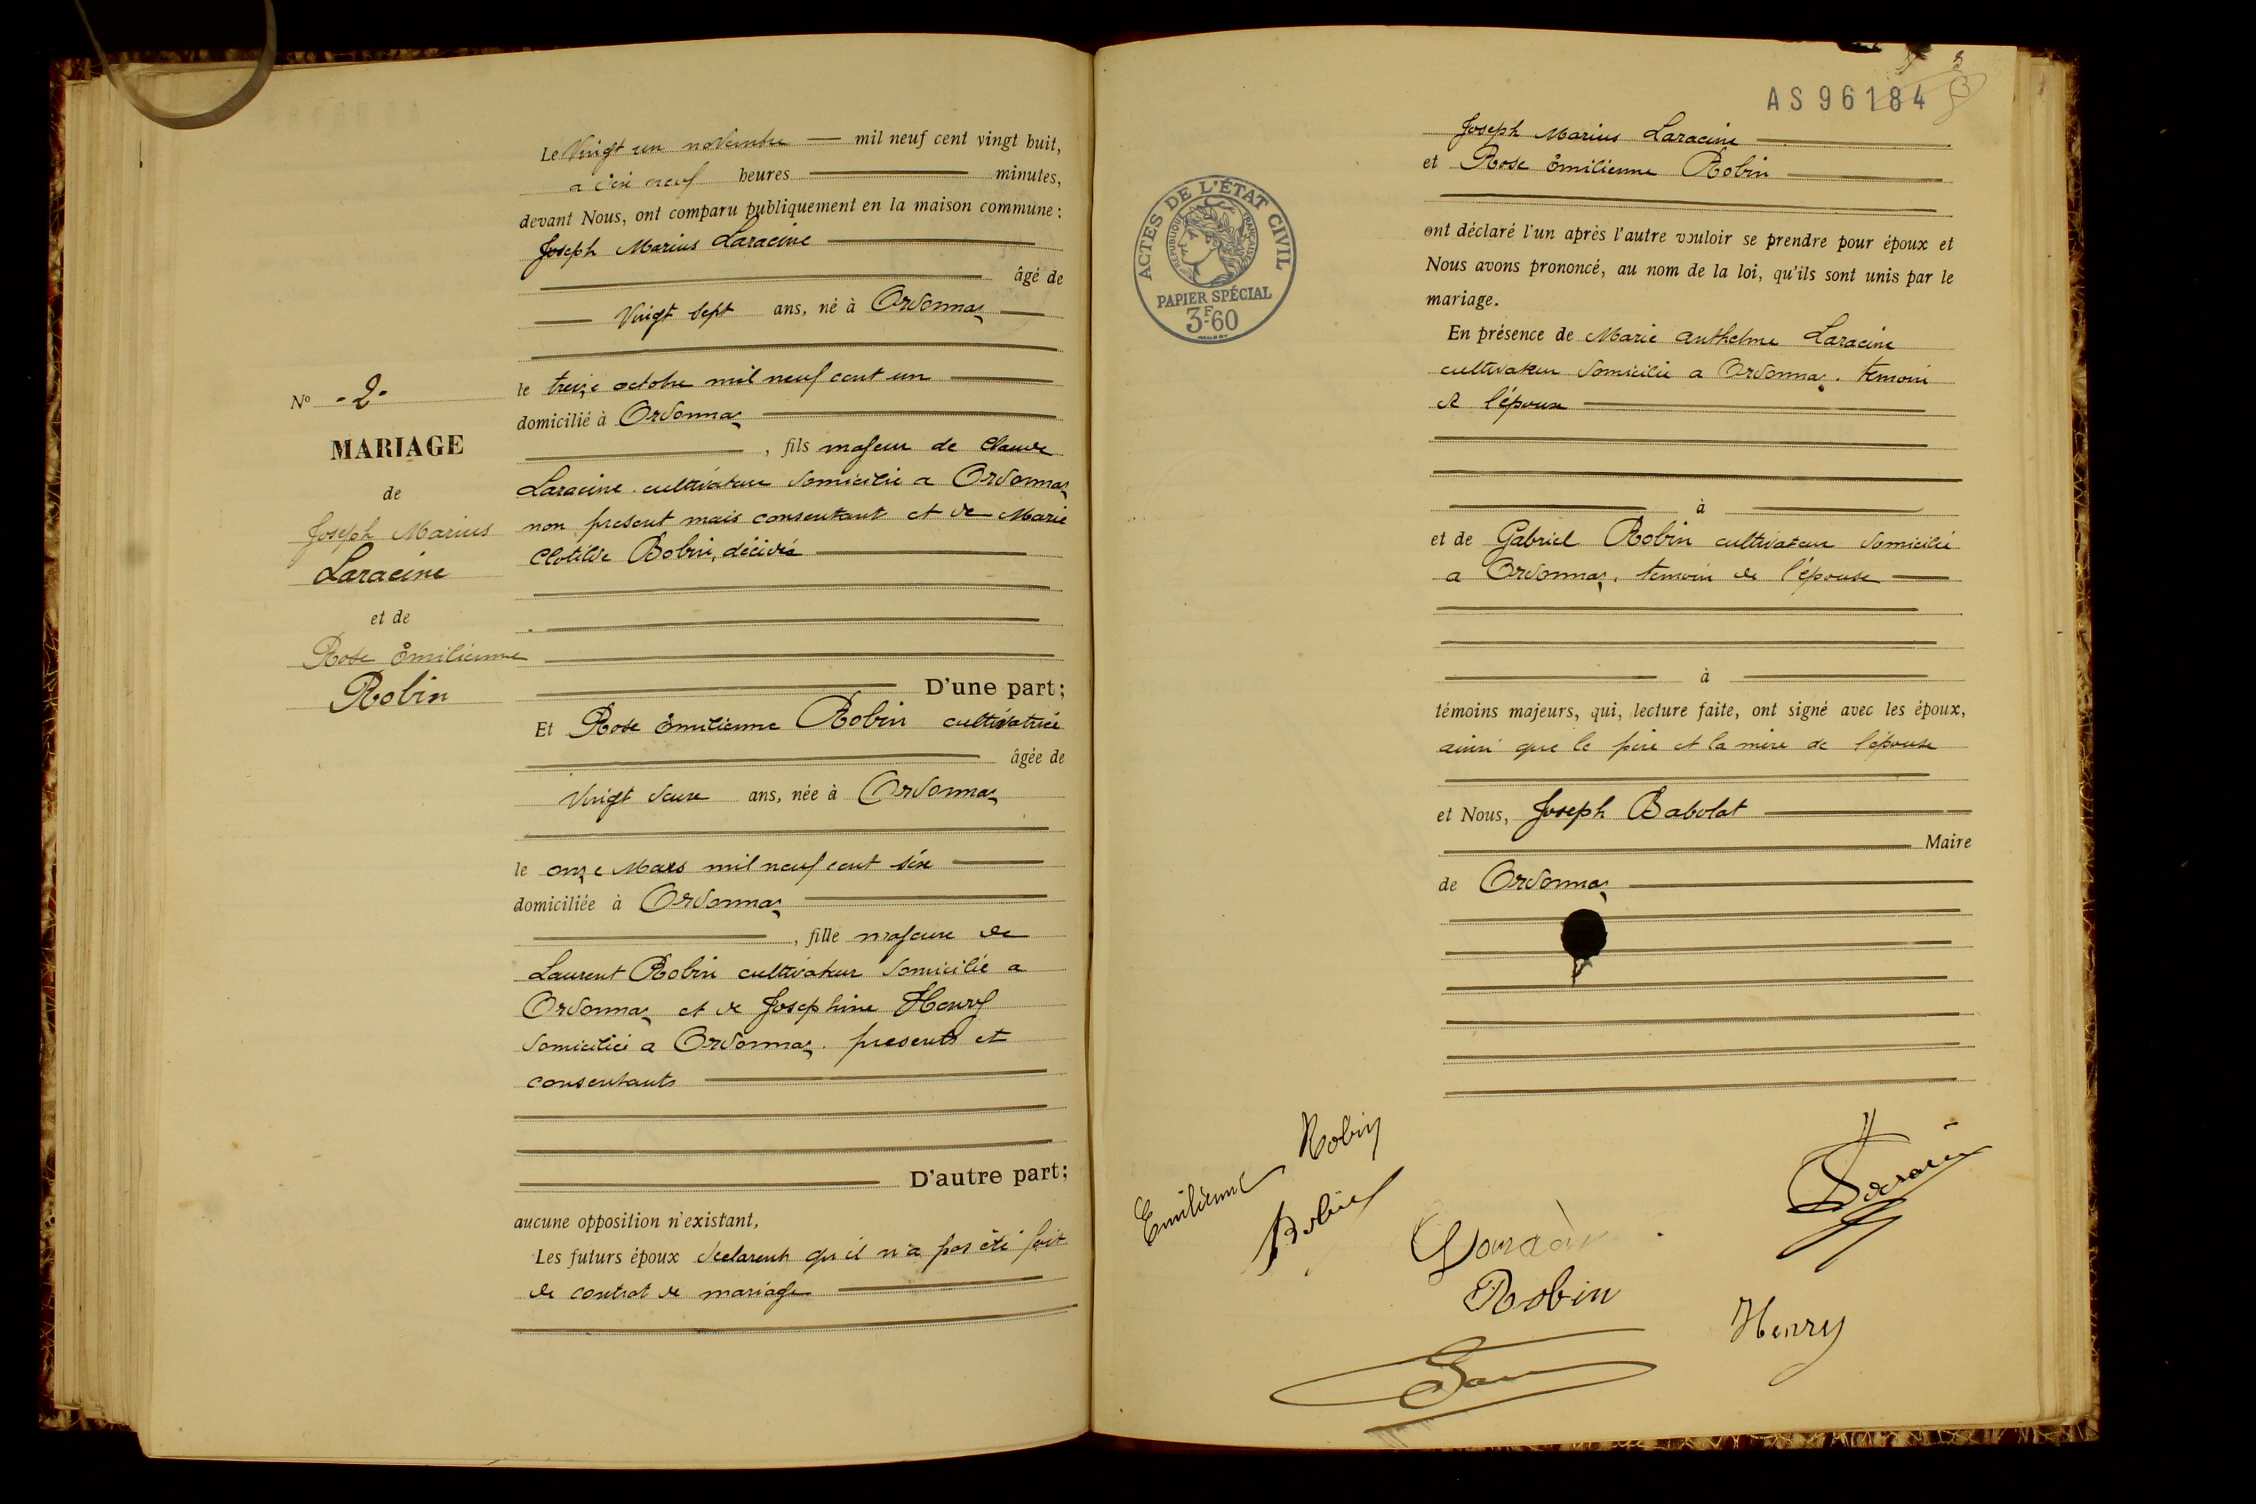 Le Vingt un novembre mil neuf cent vingt huit,
a dix neuf heures minutes,
devant Nous, ont comparu publiquement en la maison commune :
Joseph Marius Laracine
âgé de
Vingt sept ans, né à Ordonnaz
le treize octobre mil neuf cent un
domicilié à Ordonnaz
, fils majeur de Claude
Laracine cultivateur domicilié a Ordonnaz
non present mais consentant et de Marie
Clotilde Bobin, décédée
D'une part;
Et Rose Emilienne Robin cultivatrice
âgée de
Vingt deux ans, née à Ordonnaz
le onze Mars mil neuf cent six
domiciliée à Ordonnaz
, fille majeure de
Laurent Robin cultivateur domicilié a
Ordonnaz et de Josephine Henry
domiciliée a Ordonnaz. presents et
consentants
D'autre part;
aucune opposition n'existant,
Les futurs époux declarent qu'il n'a pas été fait
de contrat de mariage
Nº - 2 -
MARIAGE
de
Joseph Marius
Laracine
et de
Rose Emilienne
Robin
AS 96184
ACTES DE L'ÉTAT CIVIL
RÉPUBLIQUE FRANÇAISE
PAPIER SPÉCIAL
3F60
Joseph Marius Laracine
et Rose Emilienne Robin
ont déclaré l'un après l'autre vouloir se prendre pour époux et
Nous avons prononcé, au nom de la loi, qu'ils sont unis par le
mariage.
En présence de Marie Anthelme Laracine
cultivateur domicilié a Ordonnaz. temoin
de l'époux
à
et de Gabriel Robin cultivateur domicilié
a Ordonnaz. temoin de l'épouse
à
témoins majeurs, qui, lecture faite, ont signé avec les époux,
ainsi que le père et la mère de l'épouse
et Nous, Joseph Babolat
Maire
de Ordonnaz
Emilienne Robin
Robin
Robin
Henry